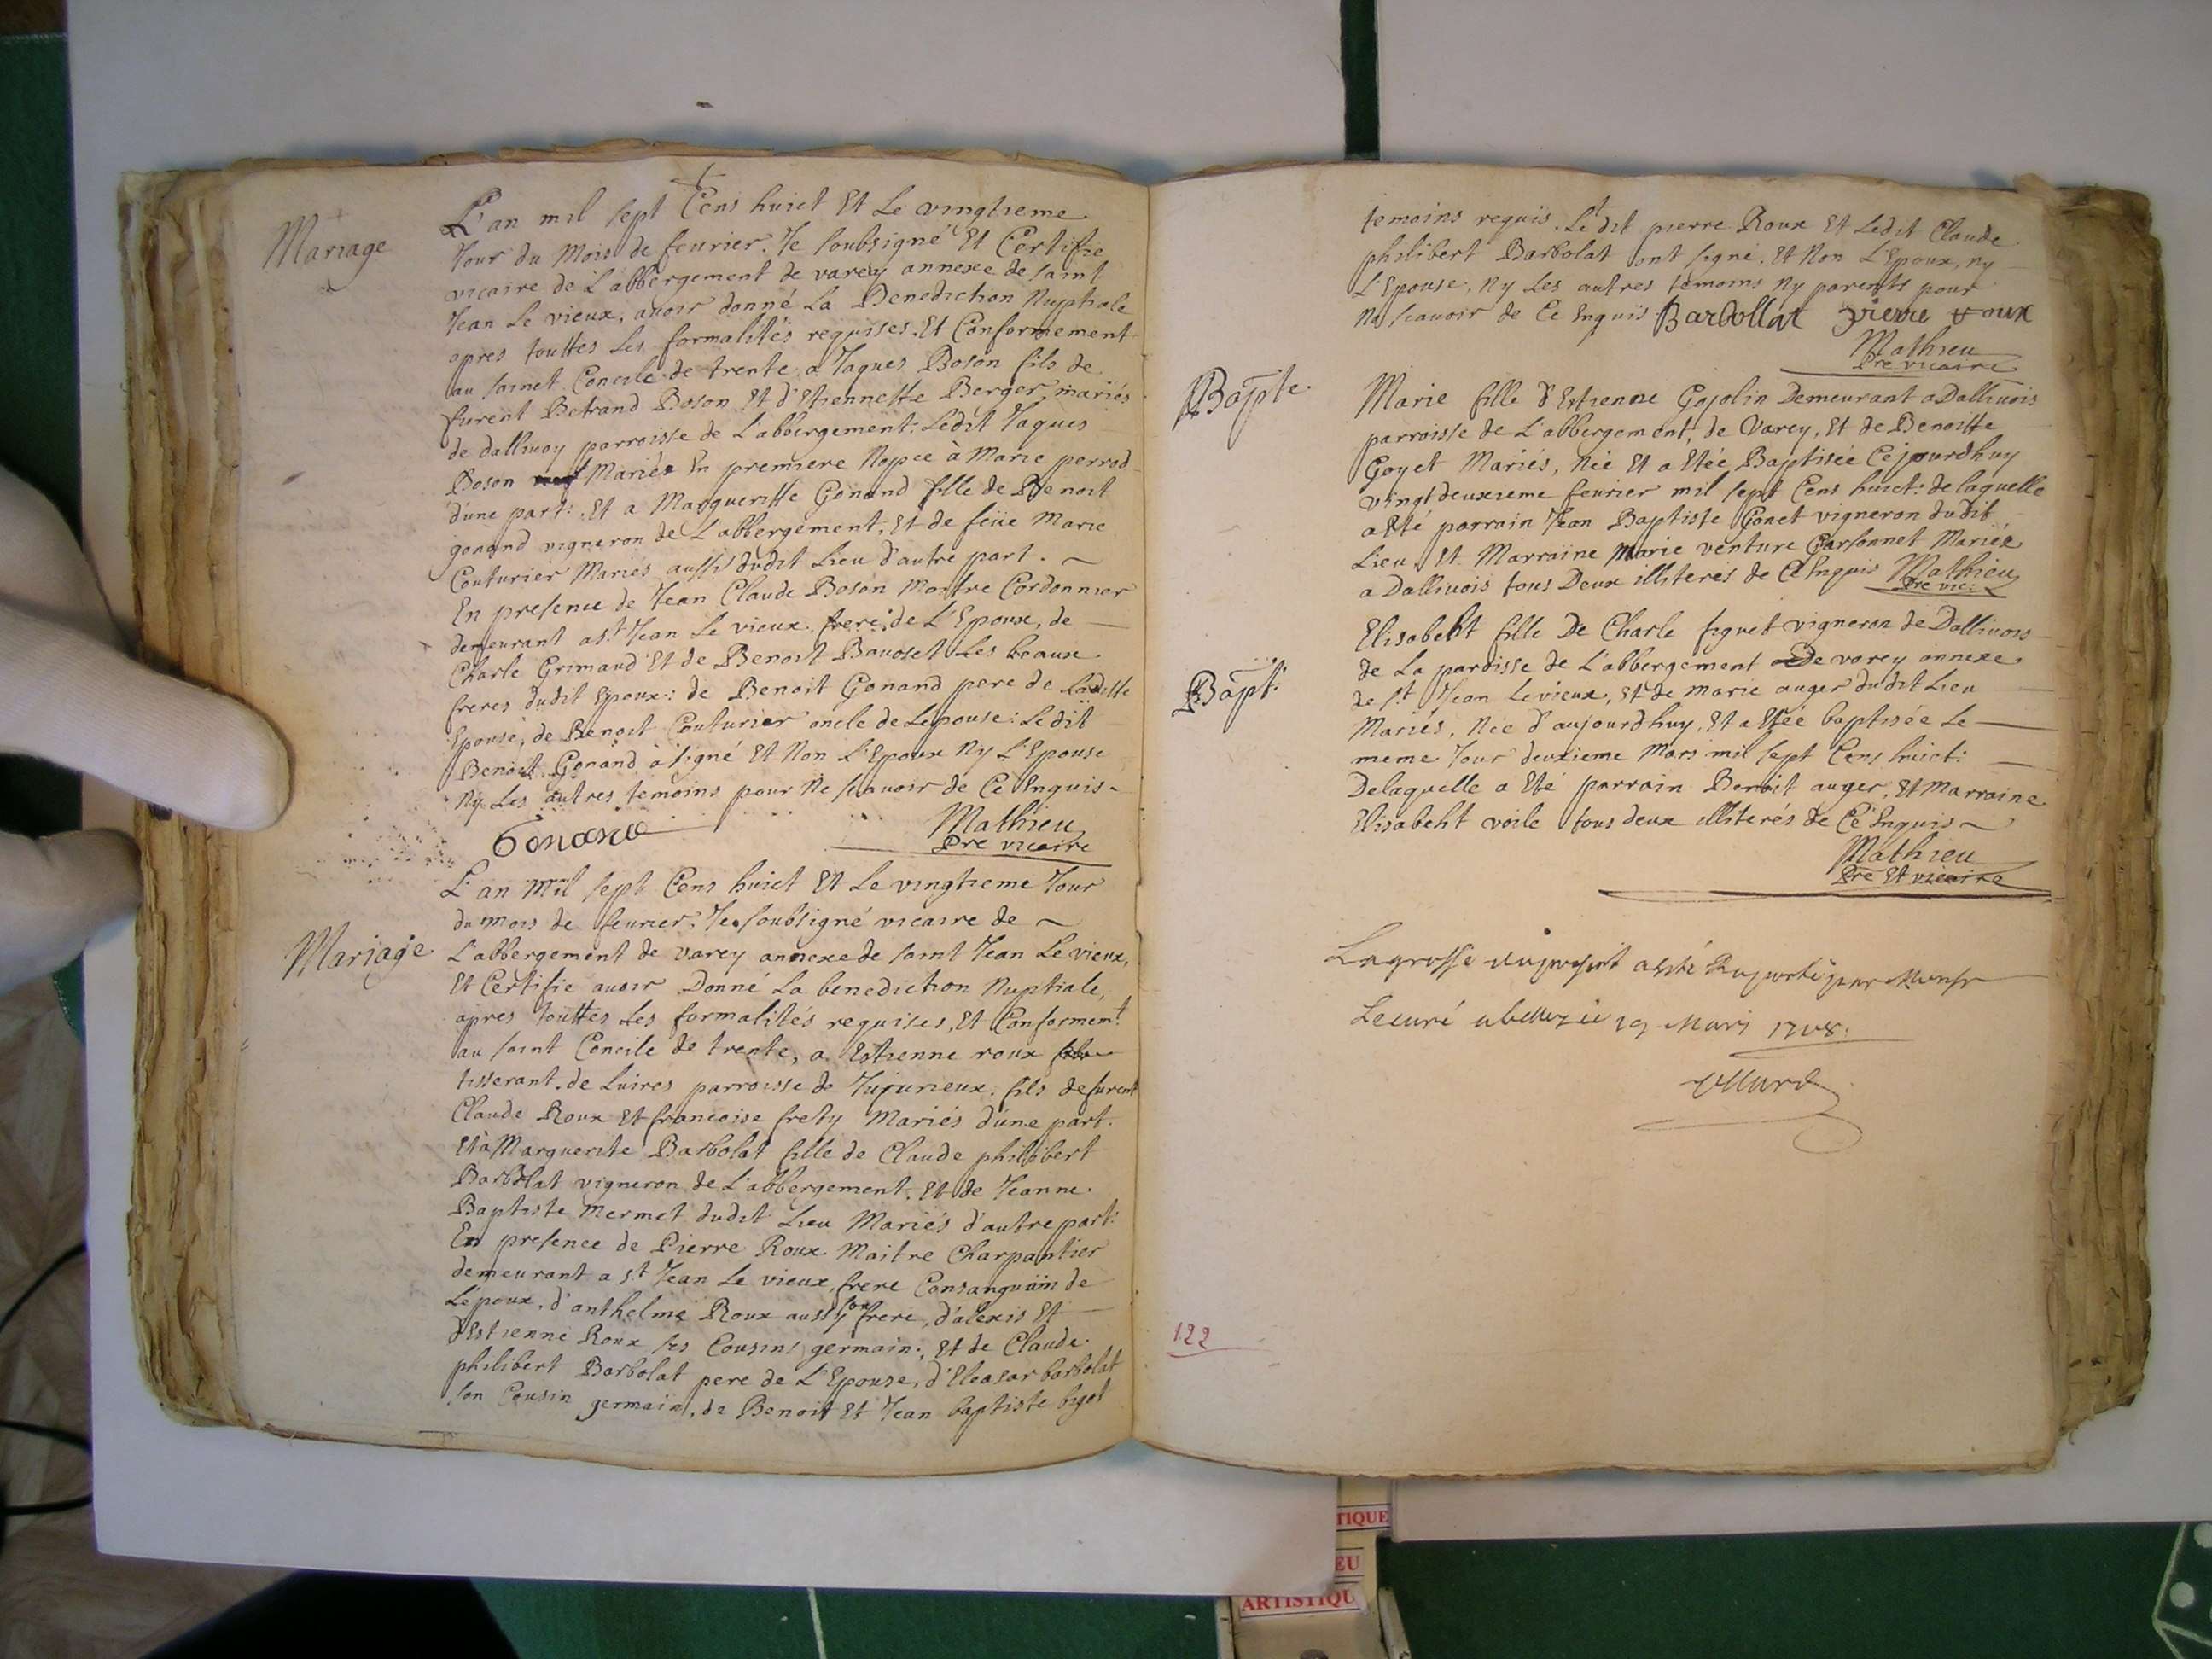 Mariage
L'an mil sept Cens huict Et Le vingtieme
Jour du Mois de feurier. Je soubsigné Et Certifie
vicaire de L'abbergement de varey annexe de saint
Jean Le vieux, avoir donné La Benediction Nuptiale
apres touttes Les formalités requises. Et Conformement
au sainct Concile de trente, a Jaques Boson fils de
furent Betrand Boson Et d'Etiennette Berger mariés
de dallivoy parroisse de L'abbergement: Ledit Jaques
Boson Mariés En premiere Nopce à Marie perrod
d'une part: Et a Marguerite Gonand fille de Benoit
gonand vigneron de L'abbergement, Et de feüe Marie
Couturier Mariés aussi dudit Lieu d'autre part.
En presence de Jean Claude Boson Maitre Cordonnier
demeurant a st Jean Le vieux frere de L'Epoux, de
Charle Grimaud Et de Benoit Bavoset Les beaux
freres dudit Epoux: de Benoit Gonand pere de Laditte
Epouse, de Benoit Couturier oncle de Lepouse: Ledit
Benoit Gonand a signé Et Non L'Epoux Ny L'Epouse
Ny Les autres temoins pour Ne scavoir de Ce Enquis
Gonand
Mathieu
Pre vicaire
Mariage
L'an Mil sept Cens huict Et Le vingtieme Jour
du mois de feurier, Je soubsigné vicaire de
L'abbergement de varey annexe de saint Jean Le vieux,
Et Certifie avoir Donné La benediction Nuptiale,
apres touttes Les formalités requises, Et Conformemt
au saint Concile de trente, a Estienne roux
tisserant de Luires parroisse de Jujurieux, fils de furent
Claude Roux Et francoise frety Mariés d'une part.
Et à Marguerite Barbolat fille de Claude philibert
Barbolat vigneron de L'abbergement, Et de Jeanne
Baptiste Mermet dudit Lieu Mariés d'autre part:
En presence de Pierre Roux Maitre Charpantier
demeurant a st Jean Le vieux, frere Consanguiin de
L'époux, d'anthelme Roux aussy son frere, d'alexis Et
d'Estienne Roux ses Cousins germain:, Et de Claude
philibert Barbolat pere de L'Epouse, d'Eleasar barbolat
son Cousin germain, de Benoit Et Jean baptiste bigot
temoins requis. Ledit pierre Roux Et Ledit Claude
philibert Barbolat ont signé, Et Non L'Epoux, ny
L'Epouse, Ny Les autres temoins Ny parents pour
Ne scavoir de Ce Enquis Barbollat pierre roux
Mathieu
Pre vicaire
Bapte
Marie fille d'Estienne Gojolin Demeurant a Dallivois
parroisse de L'abbergement, de Varey, Et de Benoitte
Goyet Mariés, Née Et a Etée Baptisée Cejourdhuy
vingt deuxieme feurier mil sept Cens huict: de laquelle
a été parrain Jean Baptiste Gonet vigneron dudit
Lieu, Et Marraine Marie venture Carsonnet Mariée
a Dallivois tous Deux illiterés de Ce Enquis Mathieu
Pre vic:
Bapt:
Elisabeht fille De Charle figuet vigneron de Dallivois
de La paroisse de L'abbergement De varey annexe
de st Jean Levieux, Et de marie auger dudit Lieu
Mariés, Née d'aujourdhuy, Et a Etée baptisée Le
meme Jour deuxieme Mars mil sept Cens huict:
Delaquelle a Eté parrain Benoit auger, Et Marraine
Elisabeht voile tous deux illiterés de Ce Enquis
Mathieu
Pre Et vicaire
La grosse du present a esté raportée par Monsr
Le curé a 19 Mars 1708.
122
TIQUE
EU
ARTISTIQU